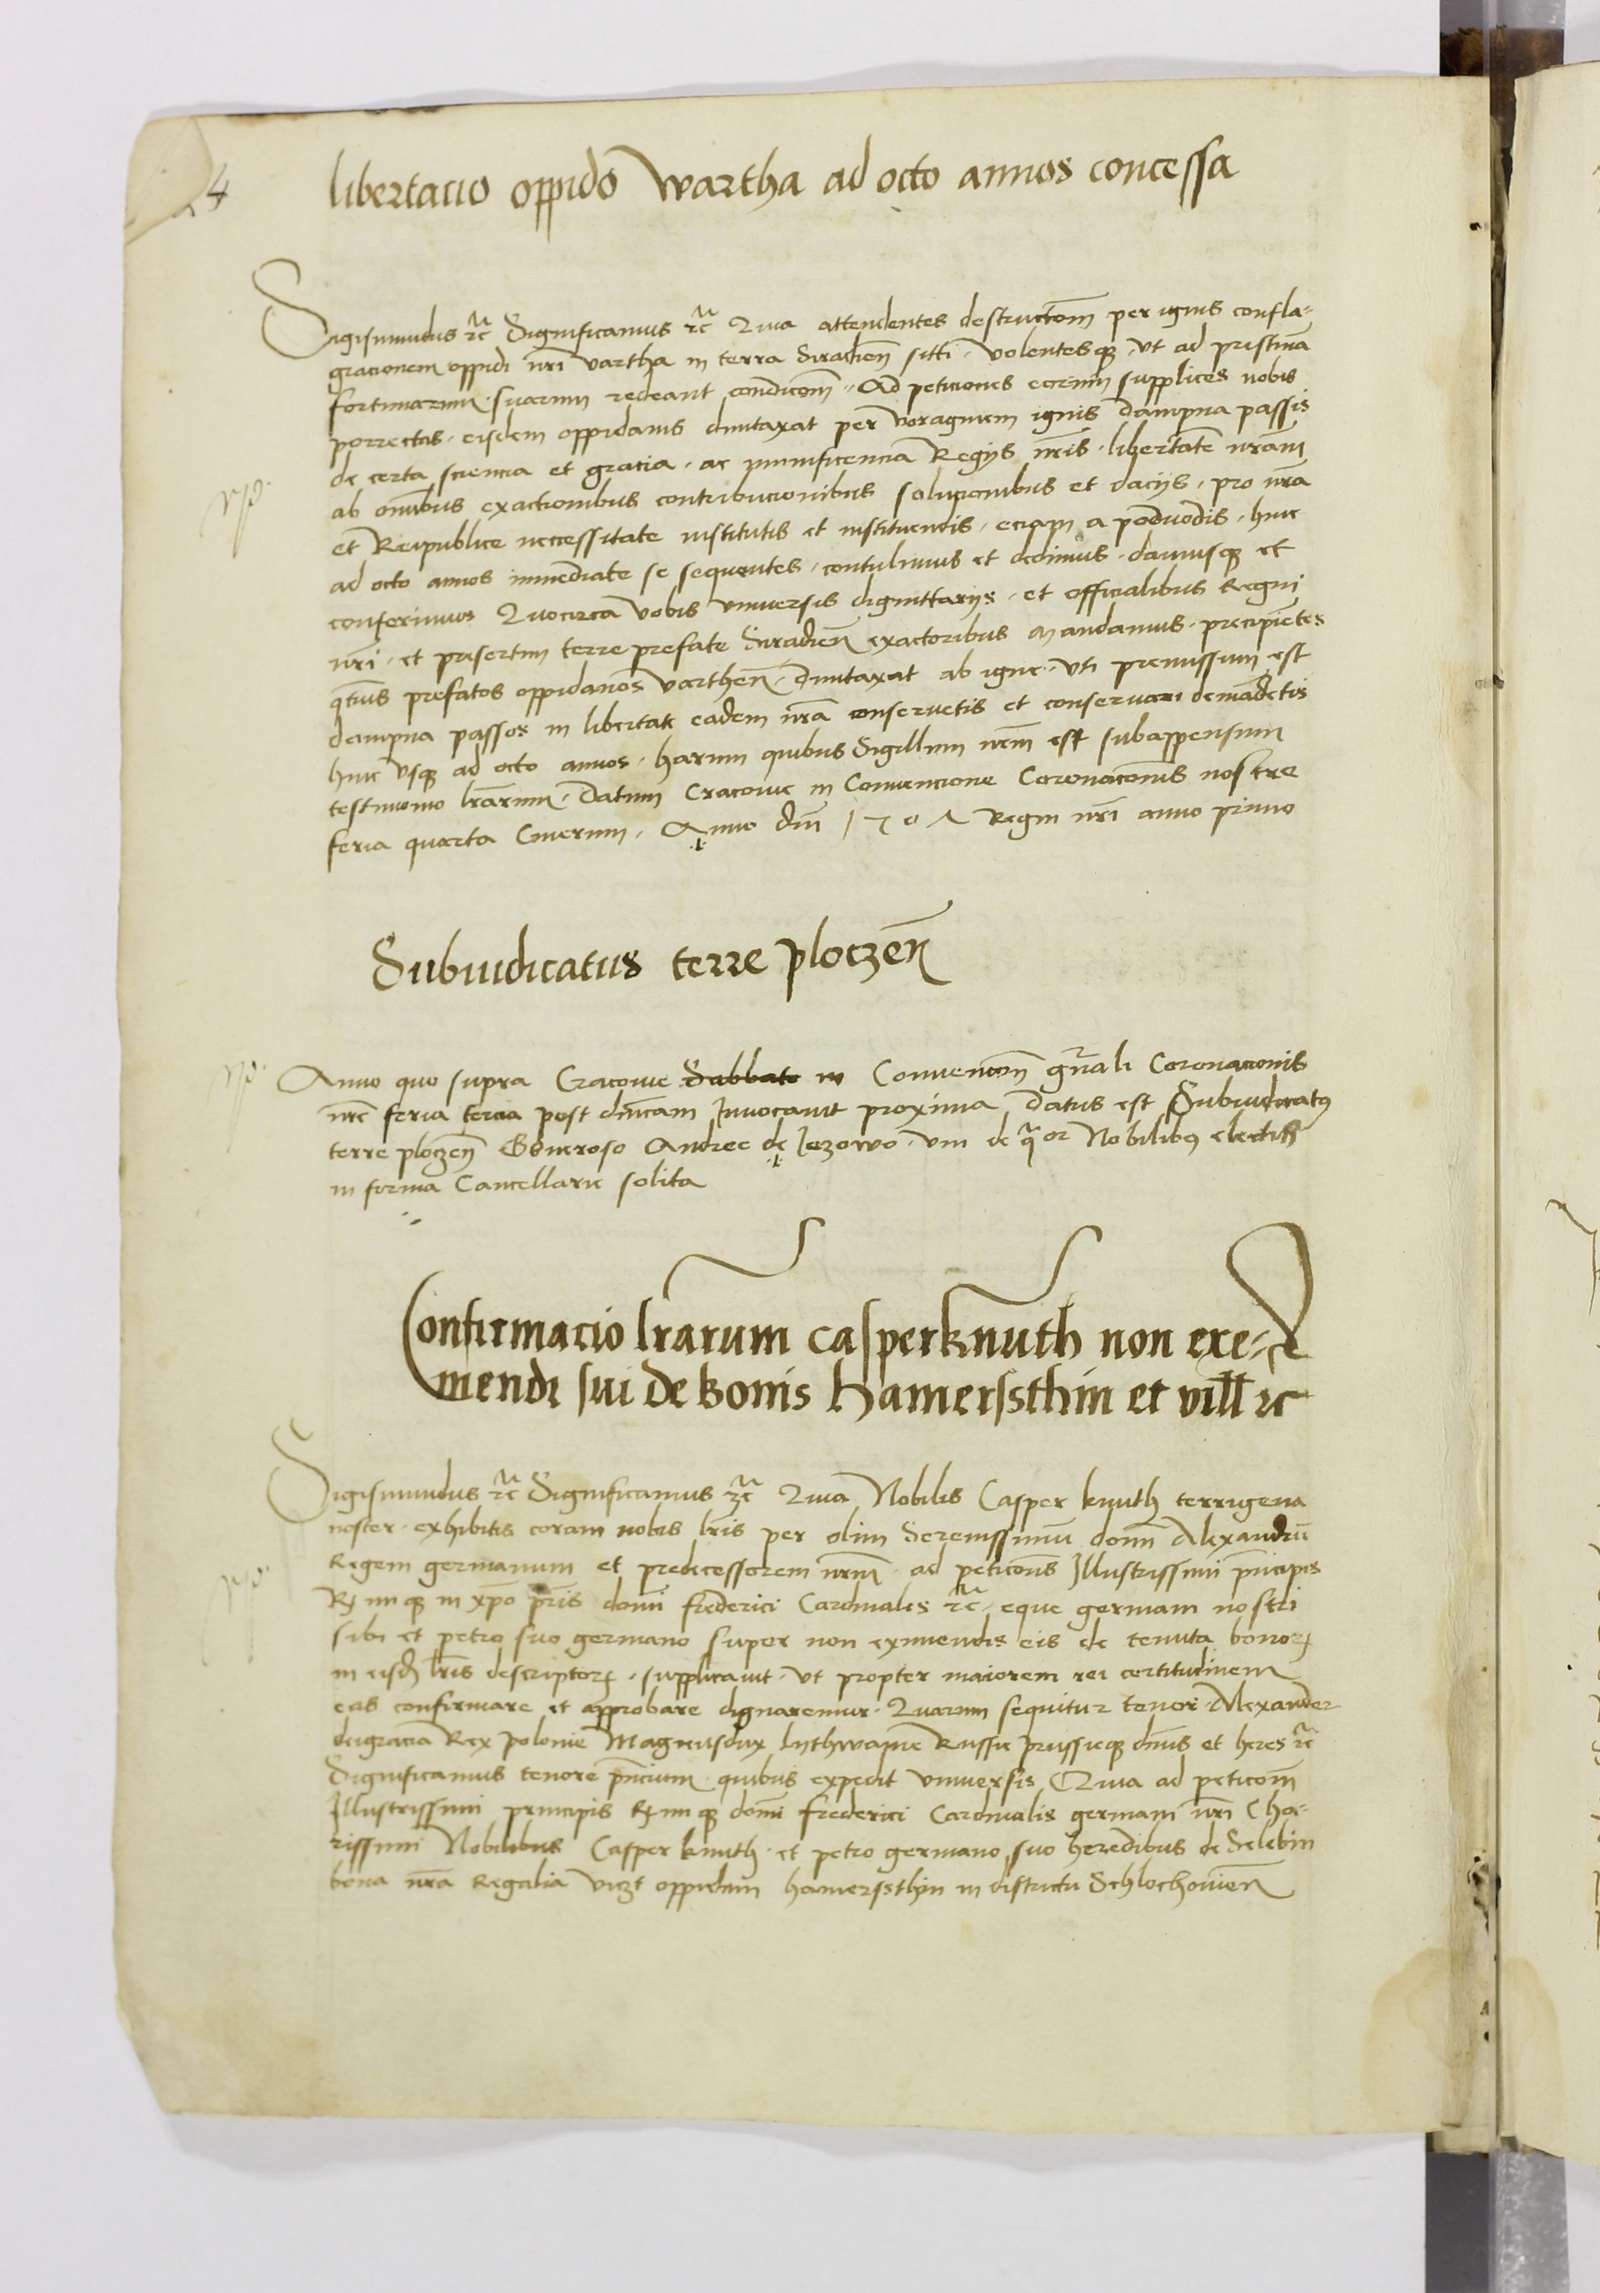 4
libertacio oppido wartha ad octo annos concessa
Sigismundus rc Significamus rc Quia attendentes destructom per ignis confla-
gracionem oppidi nri vartha in terra Siradien sitti. volentesq, vt ad pristina
fortunarum suarum redeant condicom. Ad peticiones eorum supplices nobis
porrectas. eisdem oppidanis dumtaxat per voraginem ignis dampna passis
de certa sciencia et gracia. ac munificencia Regijs nris. libertate nram
ab omibus exactionibus contribucionibus solucionibus et dacijs, pro nra
et Reipublice neccessitate institutis et instituendis, eciam a podvodis. hinc
ad octo annos immediate se sequentes, contulimus et dedimus. damusq et
conferimus Quocirca vobis vniuersis dignittarijs. et officialibus Regni
nri. et presertim terre prefate Siradien exactoribus mandamus. precipietes
qtus prefatos oppidanos varthen. dumtaxat ab igne. vti premissum est
dampna passos in libertate eadem nra conseruetis et conseruari demadetis
hinc vsq ad octo annos. harum quibus Sigillum nrm est subappensum
testimonio lrarum. Datum Cracouie in Conuencione Coronacionis nostre
feria quarta Cinerum. Anno dni 1507 Regni nri anno primo
Subiudicatus terre ploczen
Anno quo supra Cracouie Sabbato in Conuencon gnrali Coronacionis
nre feria tercia post dnicam Inuocauit proxima Datus est Subiudicatus
terre ploczen Generoso Andree de Jezowo. vni de qtuor Nobilibus electis
in forma Cancellarie solita
Confirmacio lrarum casper knuth non exe-
mendi sui de bonis hamerssthin et vill rc
Sigismundus rc Significamus rc Quia Nobilis Casper knuth terrigena
noster. exhibitis coram nobis lris per olim Serenissimu domi Alexandru
Regem germanum et predecessorem nrm. ad peticons Illustrissimi principis
Rmiq in xpo pris domi frederici Cardinalis rc. eque germani nostri
sibi et petro suo germano super non eximendis eis de tenuta bonor
in eisd lris descriptor. supplicauit. vt propter maiorem rei certitudinem
eas confirmare et approbare dignaremur. Quarum sequitur tenor. Alexander
deigracia Rex polonie Magnusdux lythwanie Russie prussieq dnus et heres rc
Significamus tenore pncium quibus expedit vniuersis. Quia ad peticom
Illustrissimi principis Rmiq domi frederici Cardinalis germani nri Cha-
rissimi Nobilibus Casper knuth. et petro germano suo heredibus de Selebin
bona nra Regalia vizt oppidum hamerssthyn in districtu Schlochouien